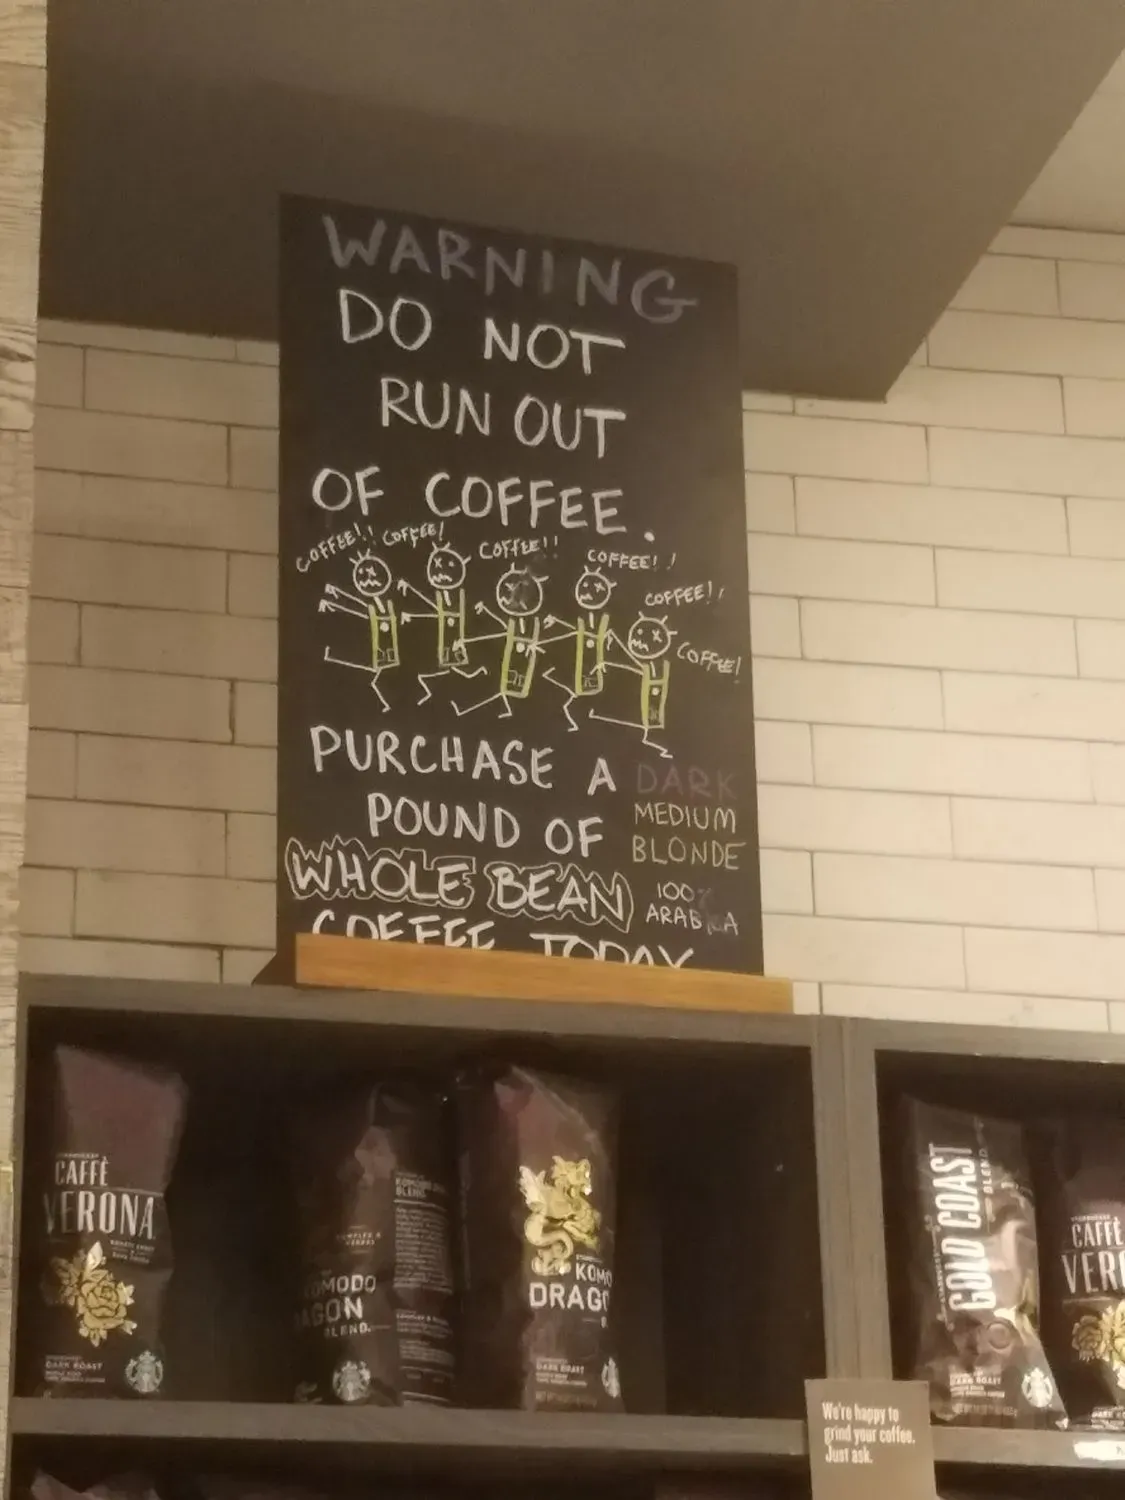 WARNING
DO NOT
RUN OUT
OF COFFEE.
COFFEE!! COFFEE! COFFEE!! COFFEE!!
COFFEE!!
COFFEE!
PURCHASE A
POUND OF
WHOLE BEAN
COFFEE TODAY
DARK
MEDIUM
BLONDE
100%
ARABICA
CAFFÈ
VERONA
DARK ROAST
KOMODO
DRAGON
BLEND.
KOMODO
BLEND
KOMO
DRAG
DARK ROAST
GOLD COAST
BLEND
DARK ROAST
CAFFÈ
VER
We're happy to
grind your coffee.
Just ask.